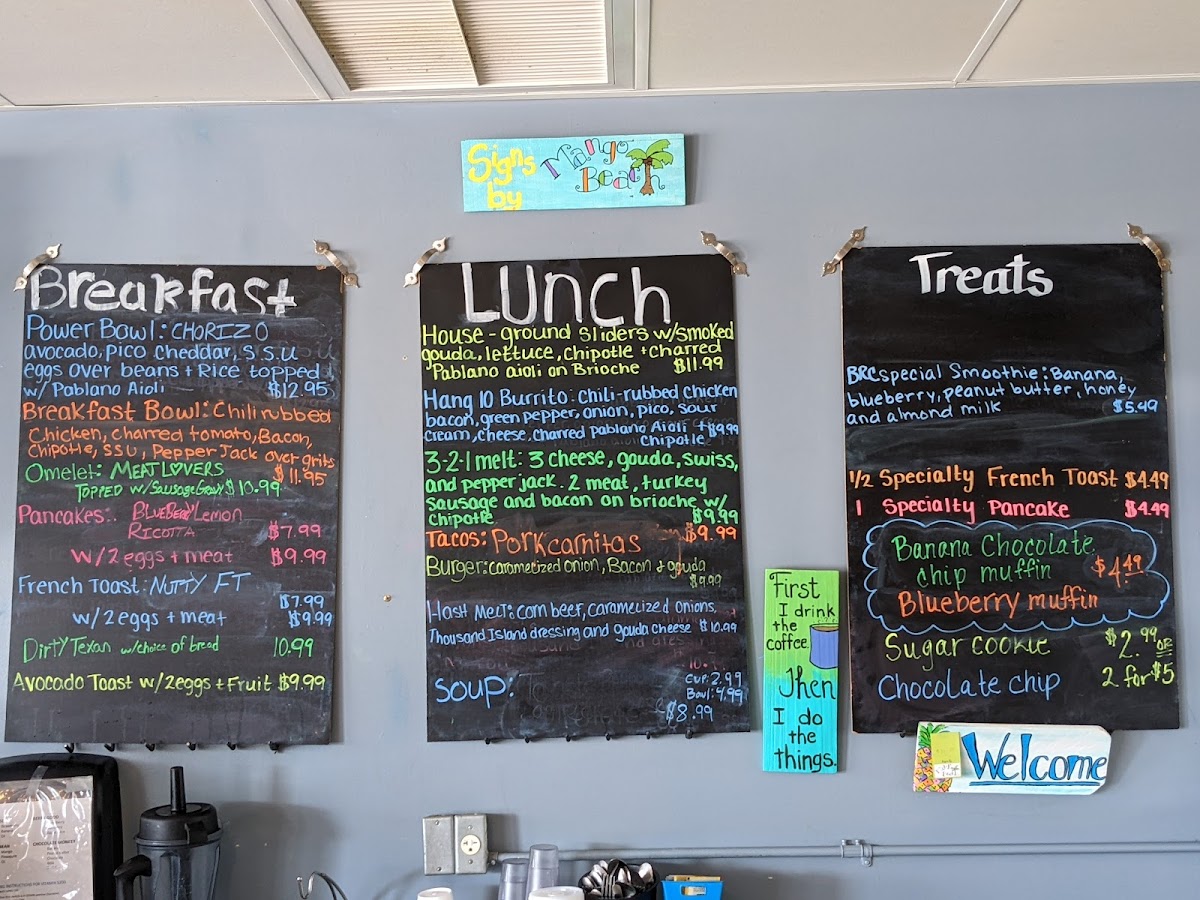 Signs by Mango Beach
Breakfast
Power Bowl: CHORIZO
avocado, pico Cheddar, S.S.U
eggs over beans + Rice topped
w/ Pablano Aioli $12.95
Breakfast Bowl: Chili rubbed
Chicken, charred tomato, Bacon,
Chipotle, SSU, Pepper Jack over grits
$11.95
Omelet: MEAT LOVERS
TOPPED w/ Sausage Gravy $10.99
Pancakes: BLUEBERRY LEMON
RICOTTA $7.99
w/ 2 eggs + meat $9.99
French Toast: NUTTY FT
$7.99
w/ 2 eggs + meat $9.99
Dirty Texan w/choice of bread 10.99
Avocado Toast w/ 2 eggs + Fruit $9.99
Lunch
House-ground Sliders w/smoked
gouda, lettuce, Chipotle + charred
Pablano aioli on Brioche $11.99
Hang 10 Burrito: chili-rubbed chicken
bacon, green pepper, onion, pico, sour
cream, cheese, charred pablano Aioli + $9.99
Chipotle
3-2-1 melt: 3 cheese, gouda, swiss,
and pepper jack. 2 meat, turkey
sausage and bacon on brioche w/
Chipotle $9.99
Tacos: Pork carnitas $9.99
Burger: caramelized onion, Bacon + gouda
$9.99
Hash Melt: corn beef, caramelized onions,
Thousand Island dressing and gouda cheese $10.99
Soup: Cup: 2.99
Bowl: 4.99
$8.99
Treats
BRC special Smoothie: Banana,
blueberry, peanut butter, honey
and almond milk $5.49
1/2 Specialty French Toast $4.49
1 Specialty Pancake $4.49
Banana Chocolate
chip muffin $4.49
Blueberry muffin
Sugar cookie $2.99 or
Chocolate chip 2 for $5
First
I drink
the
coffee.
Then
I do
the
things.
Welcome